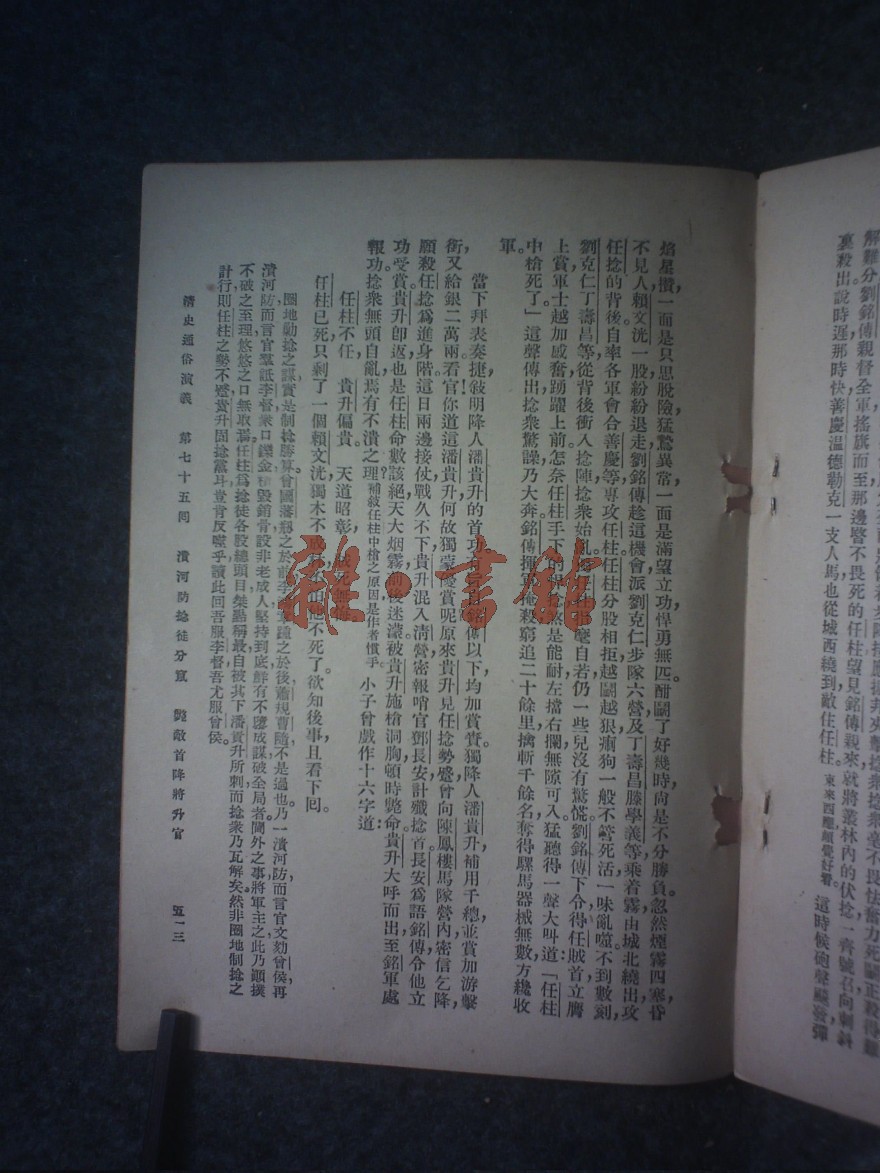 解難分劉銘傳親督全軍搖旗而至那邊瞥不畏死的任柱望見銘傳親來就將叢林內的伏捻一齊號召向刺斜
裏殺出說時遲那時快善慶溫德勒克一支人馬也從城西繞到敵住任柱。東來西應頗覺好看。這時候砲聲飈發彈
焰星攢一面是只思脫險猛騖異常一面是滿望立功悍勇無匹酣鬭了好幾時尙是不分勝負。忽然煙霧四塞昏
不見人賴文洸一股紛紛退走劉銘傳趁這機會派劉克仁步隊六營及丁壽昌滕學義等乘着霧由城北繞出攻
任捻的背後自率各軍會合善慶等專攻任柱任柱分股相拒越鬭越狠瘈狗一般不管死活一味亂噬不到數刻
劉克仁丁壽昌等從背後衝入捻陣捻衆始亂獨任柱指麾自若仍一些兒沒有驚慌劉銘傳下令得任賊首立膺
上賞軍士越加感奮踴躍上前怎奈任柱手下的悍捻煞是能耐左擋右攔無隙可入猛聽得一聲大叫道「任柱
中槍死了」這聲傳出捻衆驚譟乃大奔銘傳揮軍掩殺窮追二十餘里擒斬千餘名奪得騾馬器械無數方纔收
軍。
當下拜表奏捷敍明降人潘貴升的首功銘傳以下均加賞賚獨降人潘貴升補用千總並賞加游擊
銜又給銀二萬兩看官你道這潘貴升何故獨蒙憂賞呢原來貴升見任捻勢盛曾向陳鳳樓馬隊營內密信乞降
願殺任捻爲進身階這日兩邊接仗戰久不下貴升混入清營密報哨官鄧長安計殲捻首長安爲語銘傳令他立
功受賞貴升卽返也是任柱命數該絕天大烟霧前後迷濛被貴升施槍洞胸頓時斃命貴升大呼而出至銘軍處
報功捻衆無頭自亂焉有不潰之理?補敍任柱中槍之原因是作者慣手。小子曾戲作十六字道:
任柱不任 貴升偏貴 天道昭彰
任柱已死只剩了一個賴文洸獨木不成林不由他不死了欲知後事且看下囘。
圈地勦捻之謀實是制捻勝算曾國藩創之於前李鴻章踵之於後蕭規曹隨不是過也乃一潰河防而言官文劾曾侯再
潰河防而言官羣詆李督衆口鑠金積毀銷骨設非老成人堅持到底鮮有不墮成謀破全局者閫外之事將軍主之此乃顚撲
不破之至理悠悠之口無取焉任柱爲捻徒各股總頭目桀點稱最自被其下潘貴升所刺而捻衆乃瓦解矣然非圈地制捻之
計行則任柱之勢不蹙貴升固捻黨耳豈肯反噬乎讀此回吾服李督吾尤服曾侯。
清史通俗演義 第七十五囘 潰河防捻徒分竄 斃敵首降將升官 五一三
雜·書館